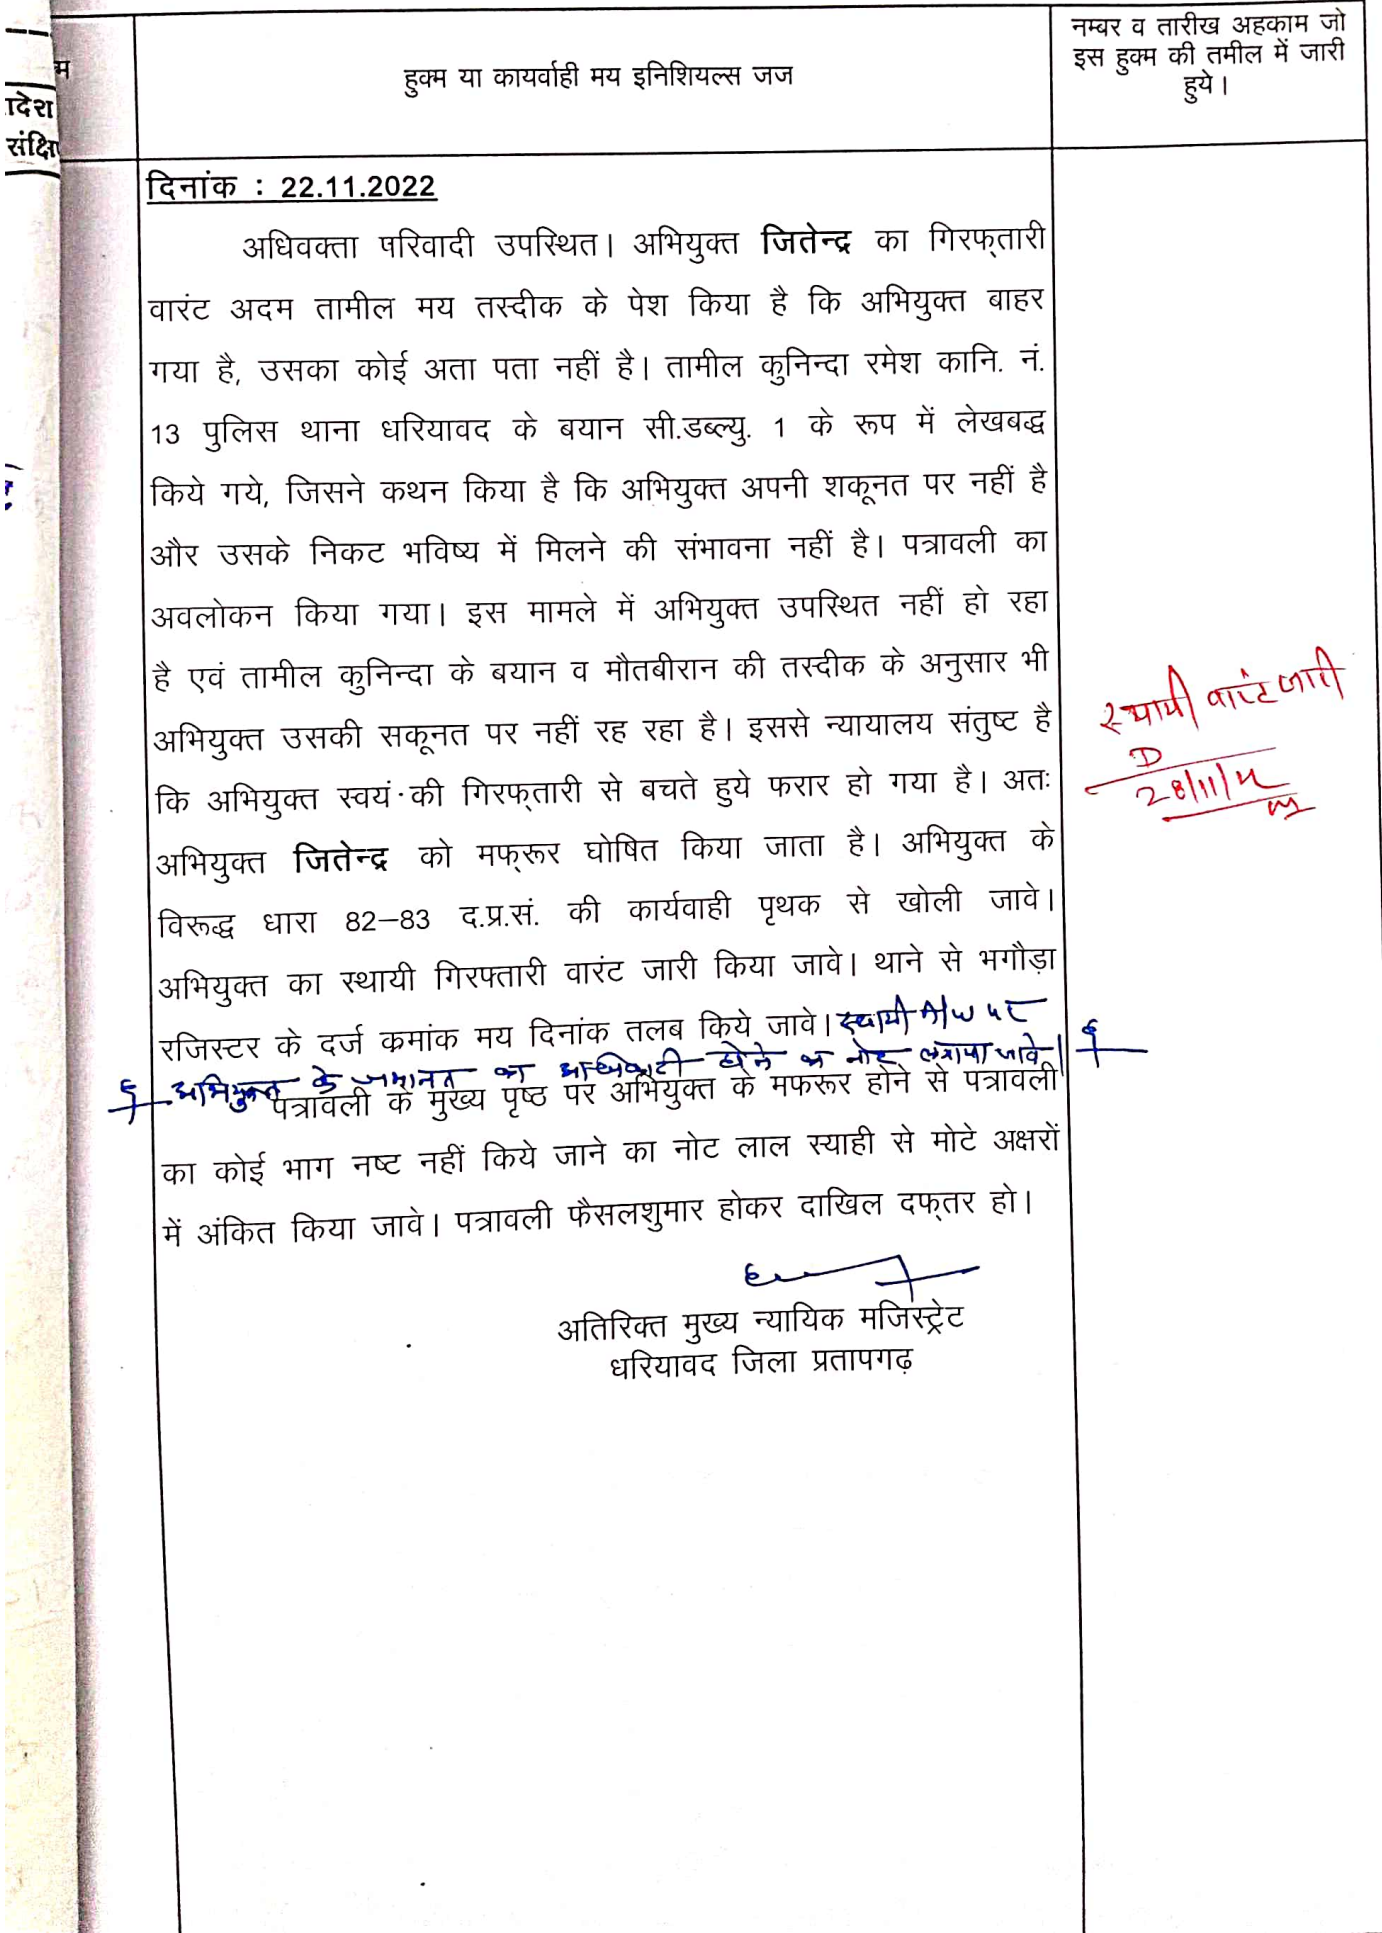 म
ादेश
संक्षि
हुक्म या कायर्वाही मय इनिशियल्स जज
नम्बर व तारीख अहकाम जो
इस हुक्म की तमील में जारी
हुये।
दिनांक : 22.11.2022
अधिवक्ता परिवादी उपस्थित। अभियुक्त जितेन्द्र का गिरफ्तारी
वारंट अदम तामील मय तस्दीक के पेश किया है कि अभियुक्त बाहर
गया है, उसका कोई अता पता नहीं है। तामील कुनिन्दा रमेश कानि. नं.
13 पुलिस थाना धरियावद के बयान सी.डब्ल्यु. 1 के रूप में लेखबद्ध
किये गये, जिसने कथन किया है कि अभियुक्त अपनी शकूनत पर नहीं है
और उसके निकट भविष्य में मिलने की संभावना नहीं है। पत्रावली का
अवलोकन किया गया। इस मामले में अभियुक्त उपस्थित नहीं हो रहा
है एवं तामील कुनिन्दा के बयान व मौतबीरान की तस्दीक के अनुसार भी
अभियुक्त उसकी सकूनत पर नहीं रह रहा है। इससे न्यायालय संतुष्ट है
कि अभियुक्त स्वयं की गिरफ्तारी से बचते हुये फरार हो गया है। अतः
अभियुक्त जितेन्द्र को मफ्रूर घोषित किया जाता है। अभियुक्त के
विरूद्ध धारा 82–83 द.प्र.सं. की कार्यवाही पृथक से खोली जावे।
अभियुक्त का स्थायी गिरफ्तारी वारंट जारी किया जावे। थाने से भगौड़ा
रजिस्टर के दर्ज कमांक मय दिनांक तलब किये जावे। स्थायी A/W पर
अभियुक्त के जमानत का अधिकारी होने का नोट लगाया जावे।
पत्रावली के मुख्य पृष्ठ पर अभियुक्त के मफरूर होने से पत्रावली
का कोई भाग नष्ट नहीं किये जाने का नोट लाल स्याही से मोटे अक्षरों
में अंकित किया जावे। पत्रावली फैसलशुमार होकर दाखिल दफ्तर हो।
स्थायी वारंट जारी
D
28/11/22
अतिरिक्त मुख्य न्यायिक मजिस्ट्रेट
धरियावद जिला प्रतापगढ़